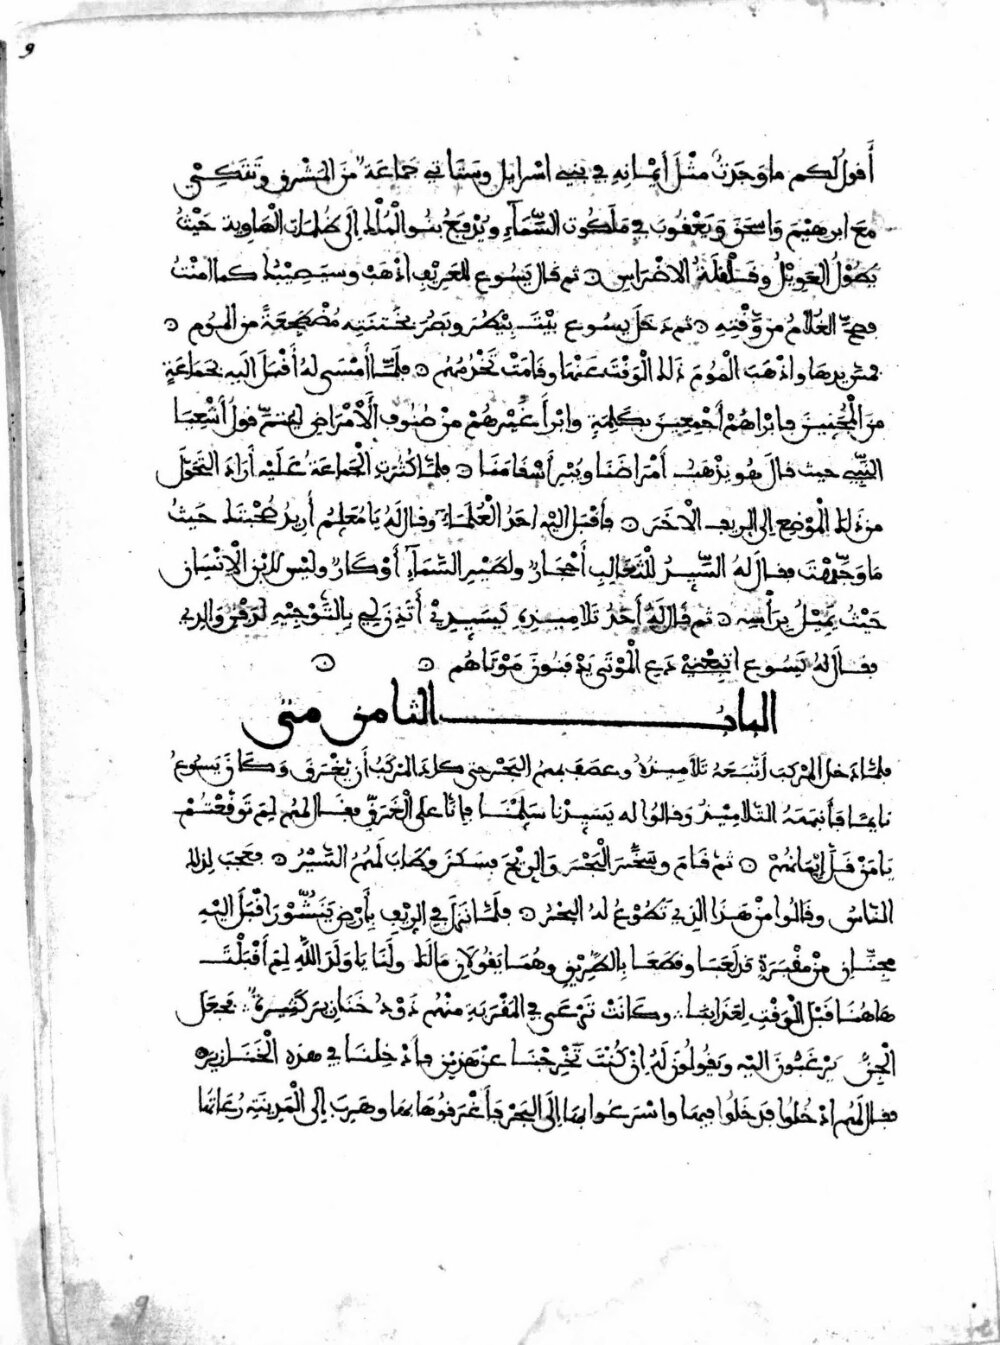 9
أَقول لَكم ما وَجَدتُ مثْلَ ايْمَانِهِ في بَني اسْرايل وسَتَاتي جَمَاعَة مِنَ المَشْرق وَتَتَّكِئ
مَعَ ابرهيْمَ وَاسحَقَ وَيَعْقُوبَ في مَلَكُوت السَّمَآءِ وَيُدْفَعُ بَنُوا الْمُلْك إِلَى ظُلمات الْهَاوية حَيْثُ
يَطُوْلُ الْعَوِيْلُ وقَلْقَلَةُ الاضْراسِ ثم قال يَسُوع للعَرِيْفِ اذْهَبْ وسيَصِيْبُك كما امَنْتَ
فصَحَّ الغُلَامُ من وَّقْتِهِ ثم دَخَلَ يسوع بَيْتَ بِيْطُرَ وبَصُرَ بخَتنَتِهِ مُضْطَجِعَةً من الحُموم
فمَسَّ يدهَا واذْهَبَ الحُمومَ ذَلك الْوَقْتَ عَنْهَا وقَامَتْ تَخْدُمُهُم فلَمَّا أَمْسَى لهُ أقْبَلَ الَيه بجَمَاعَةٍ
منَ الْمَجَّنِينَ فابْرَاهُمْ أَجْمَعِينَ بِكَلِمَةٍ وابْرَأَ غَيْرَهُمْ مِنْ صُنُوف الْأَمْرَاضِ ليَتِمَّ قولُ أَشْعِيَا
النَّبِيّ حيث قالَ هُو يُذْهِبُ أَمْرَاضَنَا ويُبْرِ أَسْقَامَنَا فلمَّا كثُرتِ الْجَمَاعَةُ عَلَيْهِ أَرَادَ التَّحَوُّلَ
من ذَلك الْمَوْضع إلى الرِيف الْاخَرَ فأَقْبَلَ اليْهِ احَدُ الْعُلَمَاءِ وقَالَ لهُ يَا مُعَلِّمُ أُرِيدُ صُحْبَتَكَ حَيْثُ
مَا وَجَّهْتَ فقال لَهُ السِّيْدُ لِلْثَعَالِبِ أَحْجَارٌ ولطَيْرِ السَّمَآءِ أَوْكَارٌ وليْسَ لابْنِ الْاِنْسَانِ
حَيْثُ يَمِيْلُ برَأْسِهِ ثم قَالَ لَهُ أَحَدُ تَلَامِيذِهِ يَسَيِدِيْ أَتَذَن لِي بِالتَّوْجِيْهِ لدَفْن وَالِدي
فقالَ لهُ يَسُوع اتبَعْنِيْ ودَعِ الْمَوْتَى يَدْفنُونَ مَوْتَاهُم
الباب الثامن متى
فلمَّا دَخل المركب أتْبَعَهُ تَلَامِيذُهُ وعصَفَ بهمُ البَحْرُ حتى كادَ المَرْكَبُ أَن يَغْرَقَ وَكَانَ يَسُوعُ
نايمًا فأَنْبَهَهُ التَلَامِيْذُ وَقالوا له يَسَيِدنَا سَلِّمْنَا فإِنَّا على الْغَرَقِ فقالَ لهم لِمَ تَوَقَّعْتُمْ
يَا مَنْ قَلَّ إِيْمَانُهُمْ ثم قَامَ وسَخَّرَ الْبَحْرَ وَالرِيْحَ فسَكَنَ وطَابَ لَهُمُ السَّيْرُ فعَجبَ لِذلك
النَّاسُ وقَالُوا مَنْ هَذَا الذِي تَطُوْعُ لهُ البَحْرُ فلَمَّا نزَلَ في الرِيْفِ بِأَرْضِ يَنَشُّوْرَ اقْبَلَ الَيْهِ
مجَنَّانِ مِنْ مقْبَرَةٍ قد لَعبَا وقطَعَا بِالطَّرِيْقِ وهُمَا يَقُولَانِ مَالَك ولَنَا يَا وَلَدَ اللَّهِ لِمْ أَقْبَلْتَ
هَاهُنَا قَبْلَ الْوَقْتِ لِعَذَابِنَا وكَانَتْ تَرْعَى في المَقْربَةِ مِنْهُم ذَوْدُ خَنَازير كَثيرَةٌ فجَعَلَ
الْجِنُّ يَرْغَبُونَ اليْهِ ويَقُولُونَ لَهُ اِن كُنْتَ تُخْرِجْنَا عنْ هَذيْنِ فأَدْخلنَا في هذهِ الْخَنازير
فقالَ لَهُم ادْخُلُوا فدَخَلُوا فيهَا واسْرَعُوا بهَا إلَى البَحْر فأَغْرَقُوْهَا بهَا وهَرَبَ إلى الْمَدِينَةِ رُعَاتُهَا
9